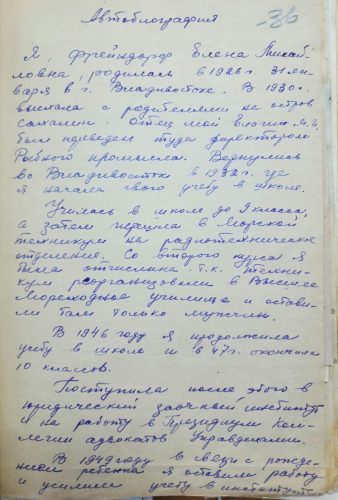 Автобиография
-36
Я, Фрейндорф Елена Михай-
ловна, родилась в 1926 г. 31 ян-
варя в г. Владивостоке. В 1930 г.
выехала с родителями на остров
Сахалин. Отец мой М.
был переведен туда директором
Рыбного промысла. Вернулись
во Владивосток в 1932 г. где
я начала свою учебу в школе.
Училась в школе до 9 класса,
а затем перешла в Морской
техникум на радиотехническое
отделение. Со второго курса я
была отчислена т.к. техни-
кум реорганизовали в Высшее
Мореходное училище и остави-
ли там только мужчин.
В 1946 году я продолжила
учебу в школе и в 47 г. окончила
10 классов.
Поступила после этого в
юридический заочный институт
и на работу в Президиум Кол-
легии адвокатов
В 1949 году в связи с рожде-
нием ребенка я оставила работу
и учебу в институте